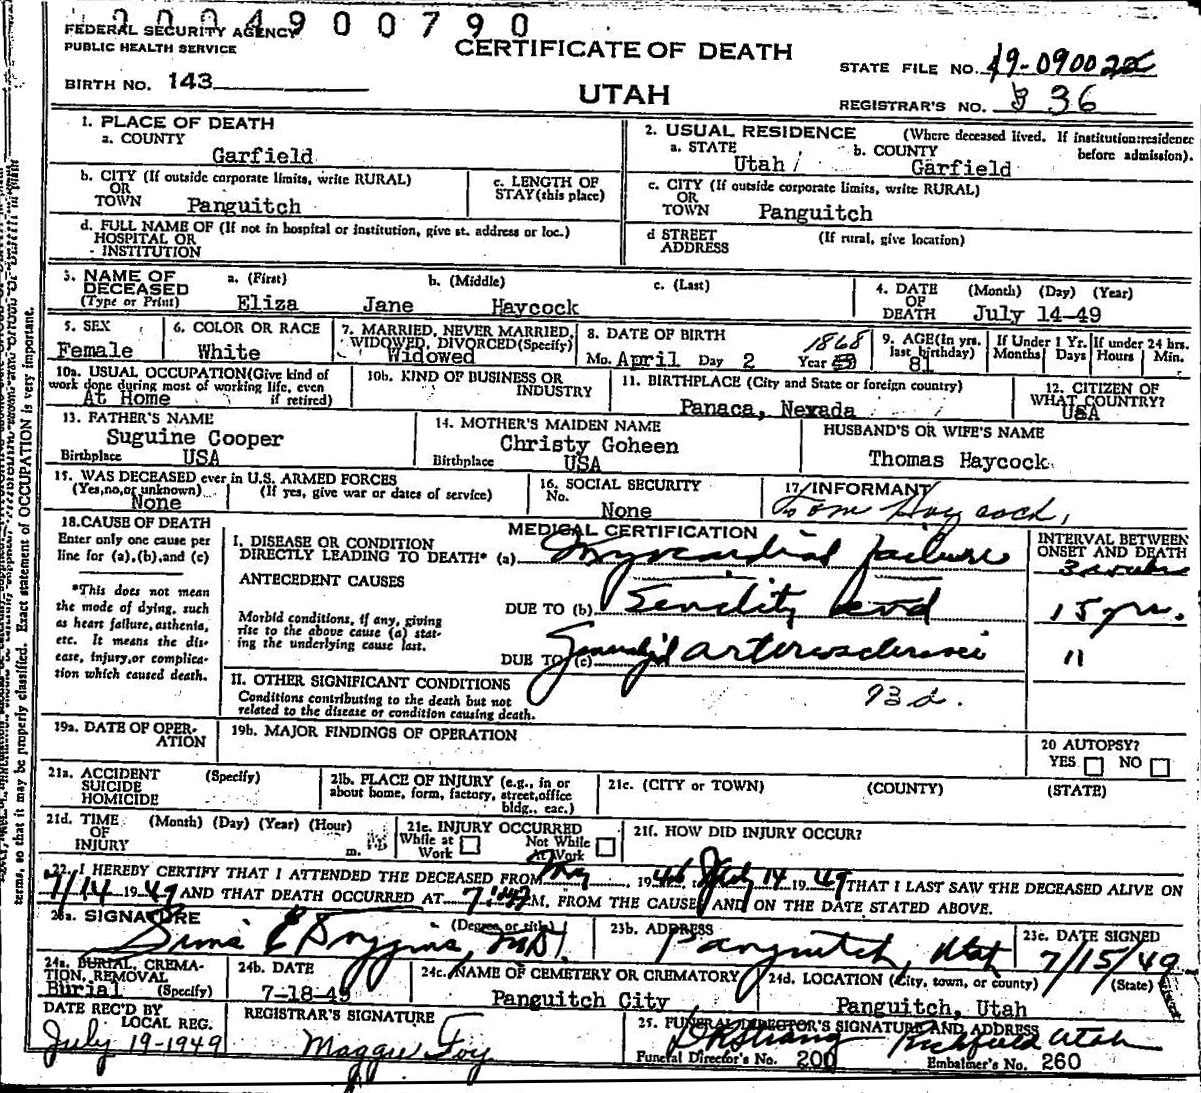 0004900790
FEDERAL SECURITY AGENCY
PUBLIC HEALTH SERVICE
CERTIFICATE OF DEATH
STATE FILE NO. 49-090022
BIRTH NO. 143
UTAH
REGISTRAR'S NO. 36
1. PLACE OF DEATH
a. COUNTY
Garfield
2. USUAL RESIDENCE (Where deceased lived. If institution:residence before admission).
a. STATE Utah b. COUNTY Garfield
b. CITY (If outside corporate limits, write RURAL)
OR
TOWN Panguitch
c. LENGTH OF
STAY (this place)
c. CITY (If outside corporate limits, write RURAL)
OR
TOWN Panguitch
d. FULL NAME OF (If not in hospital or institution, give st. address or loc.)
HOSPITAL OR
INSTITUTION
d STREET (If rural, give location)
ADDRESS
3. NAME OF DECEASED (Type or Print)
a. (First) b. (Middle) c. (Last)
Eliza Jane Haycock
4. DATE OF DEATH (Month) (Day) (Year)
July 14-49
5. SEX
Female
6. COLOR OR RACE
White
7. MARRIED, NEVER MARRIED,
WIDOWED, DIVORCED (Specify)
Widowed
8. DATE OF BIRTH 1868
Mo. April Day 2 Year
9. AGE (In yrs. last birthday)
81
If Under 1 Yr. If under 24 hrs.
Months Days Hours Min.
10a. USUAL OCCUPATION (Give kind of
work done during most of working life, even
if retired)
At Home
10b. KIND OF BUSINESS OR
INDUSTRY
11. BIRTHPLACE (City and State or foreign country)
Panaca, Nevada
12. CITIZEN OF
WHAT COUNTRY?
USA
13. FATHER'S NAME
Suguine Cooper
Birthplace USA
14. MOTHER'S MAIDEN NAME
Christy Goheen
Birthplace USA
HUSBAND'S OR WIFE'S NAME
Thomas Haycock
15. WAS DECEASED ever in U.S. ARMED FORCES
(Yes,no,or unknown) (If yes, give war or dates of service)
None
16. SOCIAL SECURITY
No.
None
17. INFORMANT
Tom Haycock
18. CAUSE OF DEATH
Enter only one cause per
line for (a), (b), and (c)
*This does not mean
the mode of dying, such
as heart failure, asthenia,
etc. It means the dis-
ease, injury, or complica-
tion which caused death.
MEDICAL CERTIFICATION
I. DISEASE OR CONDITION
DIRECTLY LEADING TO DEATH* (a) Myocardial failure
ANTECEDENT CAUSES
Morbid conditions, if any, giving
rise to the above cause (a) stat-
ing the underlying cause last.
DUE TO (b) Senility and
DUE TO (c) Generalized arteriosclerosis
INTERVAL BETWEEN
ONSET AND DEATH
3 weeks
15 yrs.
11
II. OTHER SIGNIFICANT CONDITIONS
Conditions contributing to the death but not
related to the disease or condition causing death.
93 d.
19a. DATE OF OPER-
ATION
19b. MAJOR FINDINGS OF OPERATION
20 AUTOPSY?
YES NO
21a. ACCIDENT (Specify)
SUICIDE
HOMICIDE
21b. PLACE OF INJURY (e.g., in or
about home, form, factory, street, office
bldg., eac.)
21c. (CITY OR TOWN) (COUNTY) (STATE)
21d. TIME (Month) (Day) (Year) (Hour)
OF
INJURY m.
21e. INJURY OCCURRED
While at Work Not While At Work
21f. HOW DID INJURY OCCUR?
22. I HEREBY CERTIFY THAT I ATTENDED THE DECEASED FROM May, 1946, to July 14 1949 THAT I LAST SAW THE DECEASED ALIVE ON
7/14 1949 AND THAT DEATH OCCURRED AT M, FROM THE CAUSE AND ON THE DATE STATED ABOVE.
23a. SIGNATURE (Degree or title)
Sims E Duggins, MD
23b. ADDRESS
Panguitch, Utah
23c. DATE SIGNED
7/15/49
24a. BURIAL, CREMA-
TION, REMOVAL
(Specify)
Burial
24b. DATE
7-18-49
24c. NAME OF CEMETERY OR CREMATORY
Panguitch City
24d. LOCATION (City, town, or county) (State)
Panguitch, Utah
DATE REC'D BY
LOCAL REG.
July 19-1949
REGISTRAR'S SIGNATURE
Maggie Foy
25. FUNERAL DIRECTOR'S SIGNATURE AND ADDRESS
Richfield Utah
Funeral Director's No. 200 Embalmer's No. 260
terms, so that it may be properly classified. Exact statement of OCCUPATION is very important.